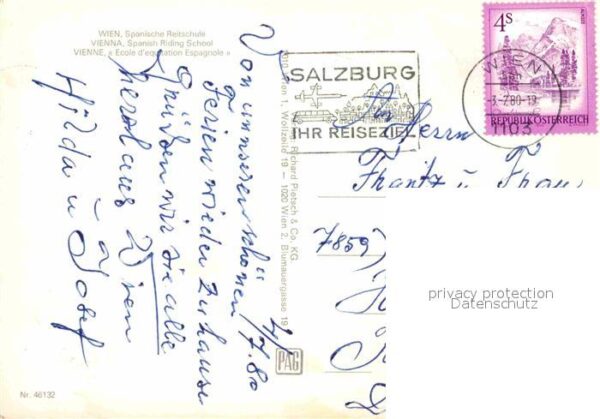 WIEN, Spanische Reitschule
VIENNA, Spanish Riding School
VIENNE, « Ecole d'equitation Espagnole »
4/7.80
Von unnseren schönen
Ferien wieder zuhause
Grüßen wir sie alle
herzl aus Wien
Hilda u Josef
Nr. 46132
Richard Pietsch & Co. KG
Wien 1, Wollzeile 19 — 1020 Wien 2, Blumauergasse 19
PAG
SALZBURG
IHR REISEZIEL
4S
REPUBLIK ÖSTERREICH
WIEN
-3.-7.80-19
1103
Herrn
Frantz u. Frau
7859
privacy protection
Datenschutz